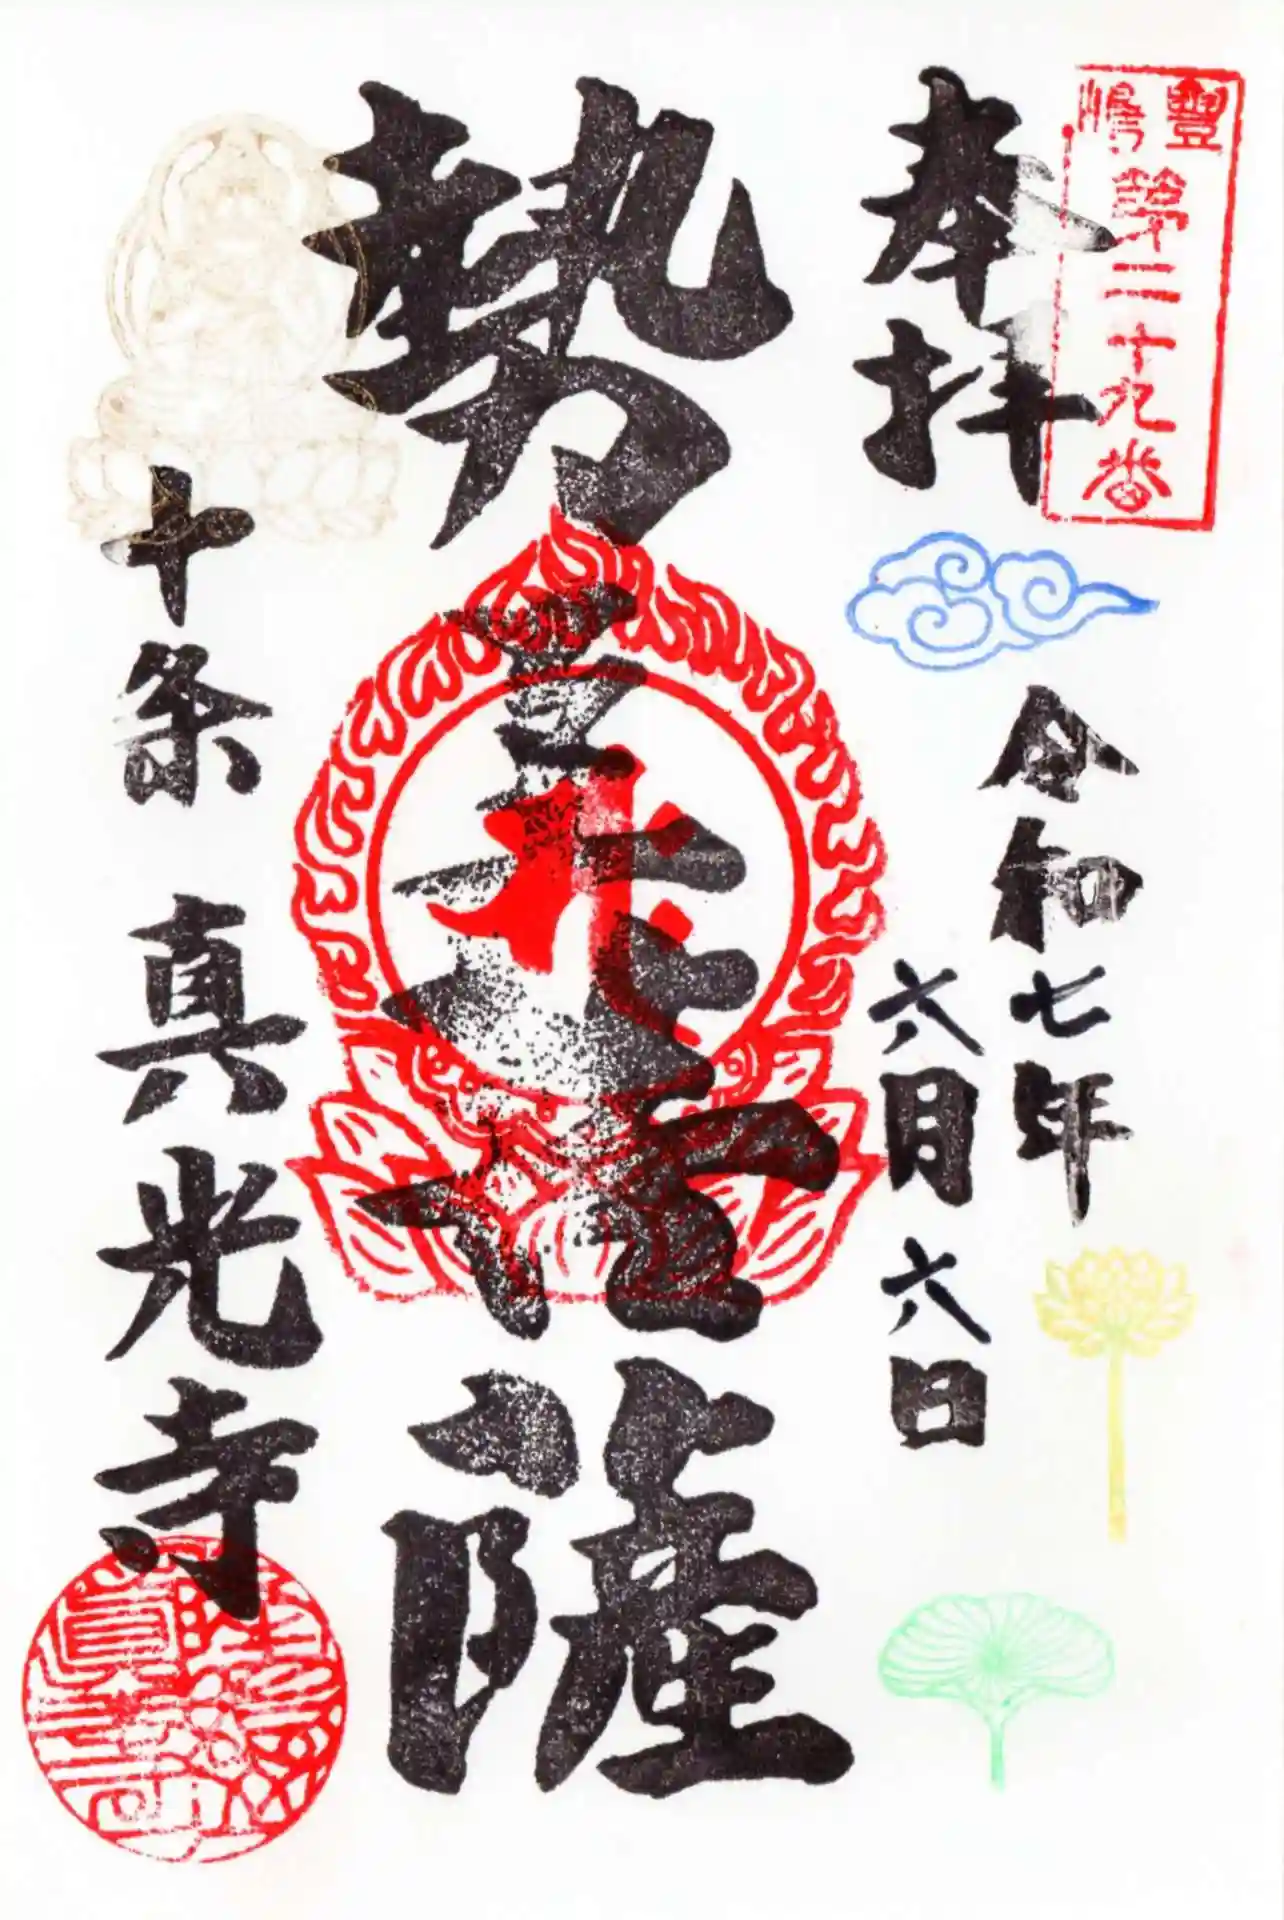 豐嶋
第二十九番
奉拝
令和七年
六月六日
勢至菩薩
十条 真光寺